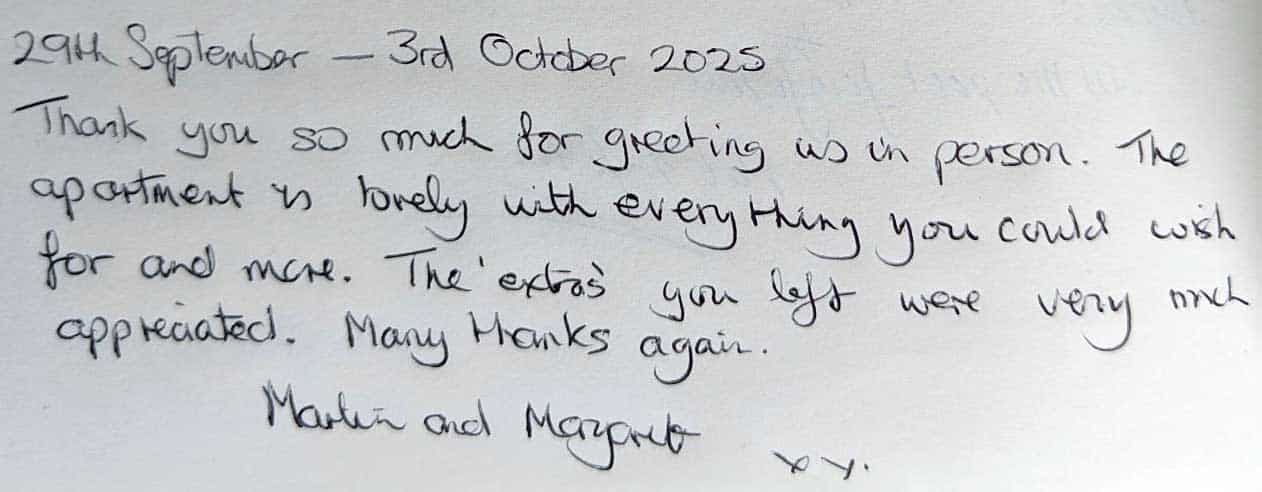 29th September – 3rd October 2025
Thank you so much for greeting us in person. The
apartment is lovely with everything you could wish
for and more. The 'extras' you left were very much
appreciated. Many thanks again.
Martin and Margaret xx.